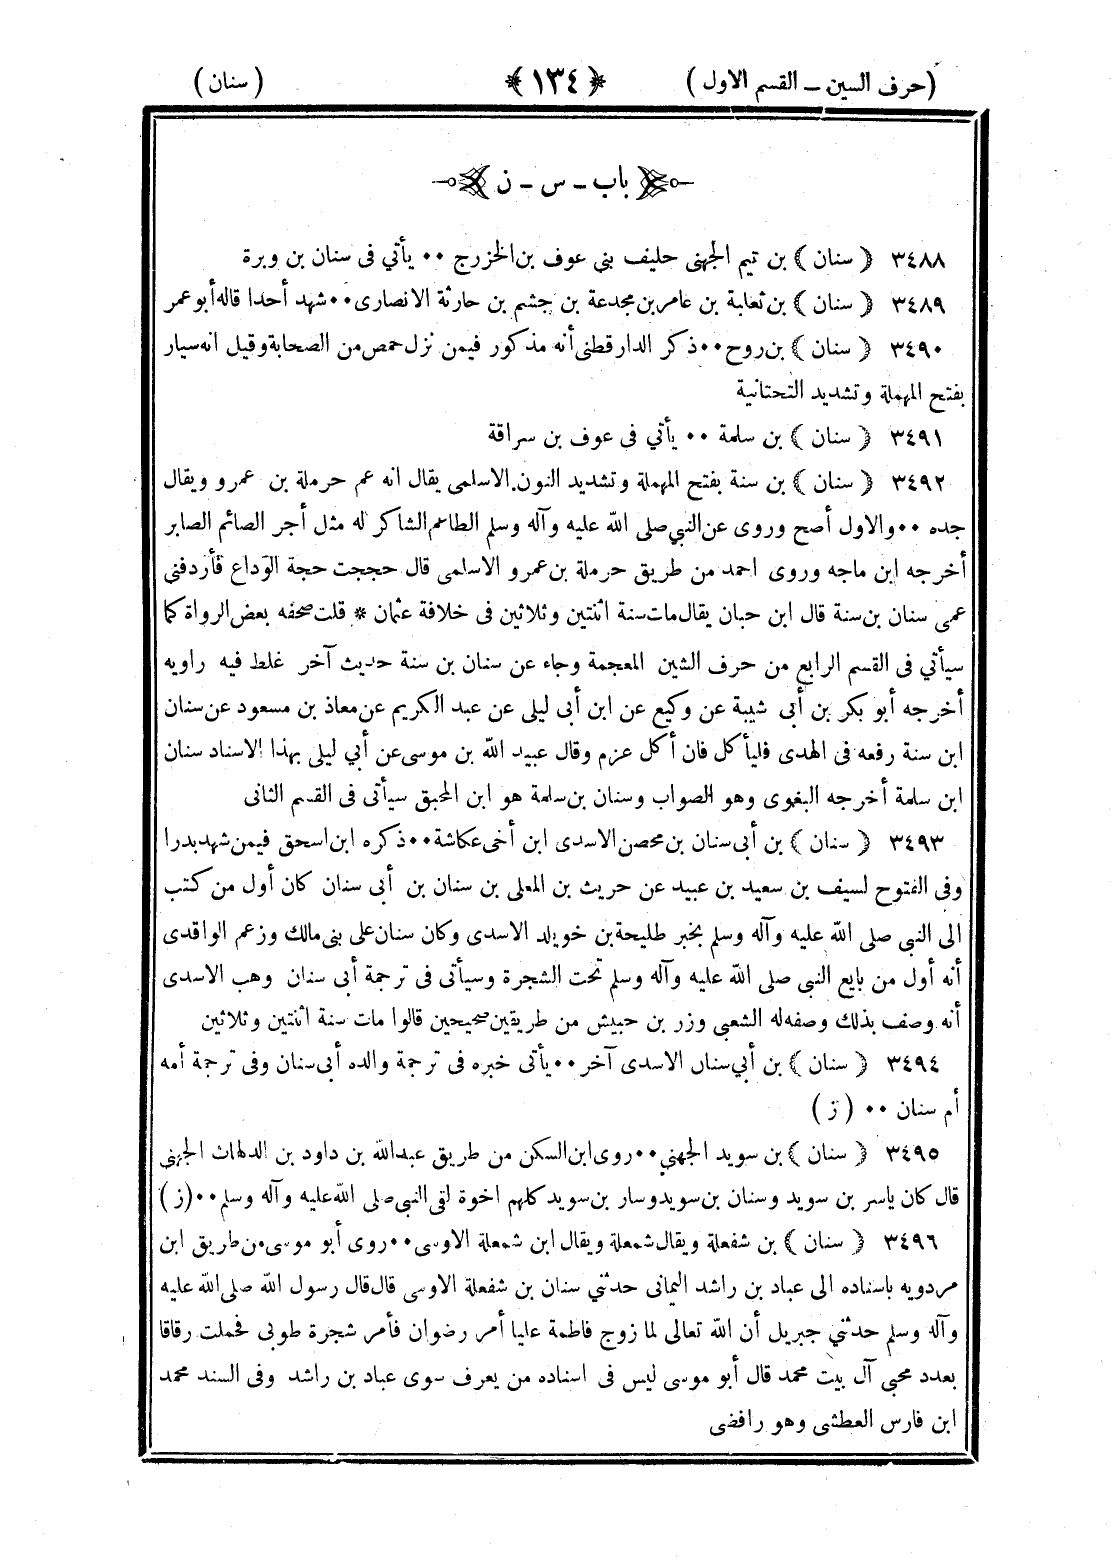 (حرف السين – القسم الاول) ﴿ ١٣٤ ﴾ (سنان)
باب – س – ن
٣٤٨٨ ﴿ سنان ﴾ بن تيم الجهنى حليف بني عوف بن الخزرج ٠٠ يأتي فى سنان بن وبرة
٣٤٨٩ ﴿ سنان ﴾ بن ثعلبة بن عامر بن مجدعة بن جشم بن حارثة الانصارى ٠٠ شهد أحدا قاله أبو عمر
٣٤٩٠ ﴿ سنان ﴾ بن روح ٠٠ ذكر الدارقطنى أنه مذكور فيمن نزل حمص من الصحابة وقيل انه سيار
بفتح المهملة وتشديد التحتانية
٣٤٩١ ﴿ سنان ﴾ بن سلمة ٠٠ يأتي فى عوف بن سراقة
٣٤٩٢ ﴿ سنان ﴾ بن سنة بفتح المهملة وتشديد النون. الاسلمى يقال انه عم حرملة بن عمرو ويقال
جده ٠٠ والاول أصح وروى عن النبي صلى الله عليه وآله وسلم الطاعم الشاكر له مثل أجر الصائم الصابر
أخرجه ابن ماجه وروى احمد من طريق حرملة بن عمرو الاسلمى قال حججت حجة الوداع فأردفنى
عمى سنان بن سنة قال ابن حبان يقال مات سنة اثنتين وثلاثين فى خلافة عثمان * قلت صحفه بعض الرواة كما
سيأتي فى القسم الرابع من حرف الشين المعجمة وجاء عن سنان بن سنة حديث آخر غلط فيه راويه
أخرجه أبو بكر بن أبى شيبة عن وكيع عن ابن أبى ليلى عن عبد الكريم عن معاذ بن مسعود عن سنان
ابن سنة رفعه فى الهدى فليأكل فان أكل عزم وقال عبيد الله بن موسى عن أبي ليلى بهذا الاسناد سنان
ابن سلمة أخرجه البغوى وهو الصواب وسنان بن سلمة هو ابن المحبق سيأتى فى القسم الثانى
٣٤٩٣ ﴿ سنان ﴾ بن أبى سنان بن محصن الاسدى ابن أخى عكاشة ٠٠ ذكره ابن اسحق فيمن شهد بدرا
وفى الفتوح لسيف بن سعيد بن عبيد عن حريث بن المعلى بن سنان بن أبى سنان كان أول من كتب
الى النبي صلى الله عليه وآله وسلم بخبر طليحة بن خويلد الاسدى وكان سنان على بنى مالك وزعم الواقدى
أنه أول من بايع النبي صلى الله عليه وآله وسلم تحت الشجرة وسيأتى فى ترجمة أبى سنان وهب الاسدى
أنه وصف بذلك وصفه له الشعبى وزر بن حبيش من طريقين صحيحين قالوا مات سنة اثنتين وثلاثين
٣٤٩٤ ﴿ سنان ﴾ بن أبي سنان الاسدى آخر ٠٠ يأتى خبره فى ترجمة والده أبى سنان وفى ترجمة أمه
أم سنان ٠٠ (ز)
٣٤٩٥ ﴿ سنان ﴾ بن سويد الجهني ٠٠ روى ابن السكن من طريق عبد الله بن داود بن الدلهاث الجهنى
قال كان ياسر بن سويد وسنان بن سويد وسار بن سويد كلهم اخوة لقى النبى صلى الله عليه وآله وسلم ٠٠ (ز)
٣٤٩٦ ﴿ سنان ﴾ بن شفعلة ويقال شمعلة ويقال ابن شمعلة الاوسى ٠٠ روى أبو موسى من طريق ابن
مردويه باسناده الى عباد بن راشد اليمانى حدثني سنان بن شفعلة الاوسى قال قال رسول الله صلى الله عليه
وآله وسلم حدثني جبريل أن الله تعالى لما زوج فاطمة عليا أمر رضوان فأمر شجرة طوبى فحملت رقاقا
بعدد محبي آل بيت محمد قال أبو موسى ليس فى اسناده من يعرف سوى عباد بن راشد وفى السند محمد
ابن فارس العطشى وهو رافضى